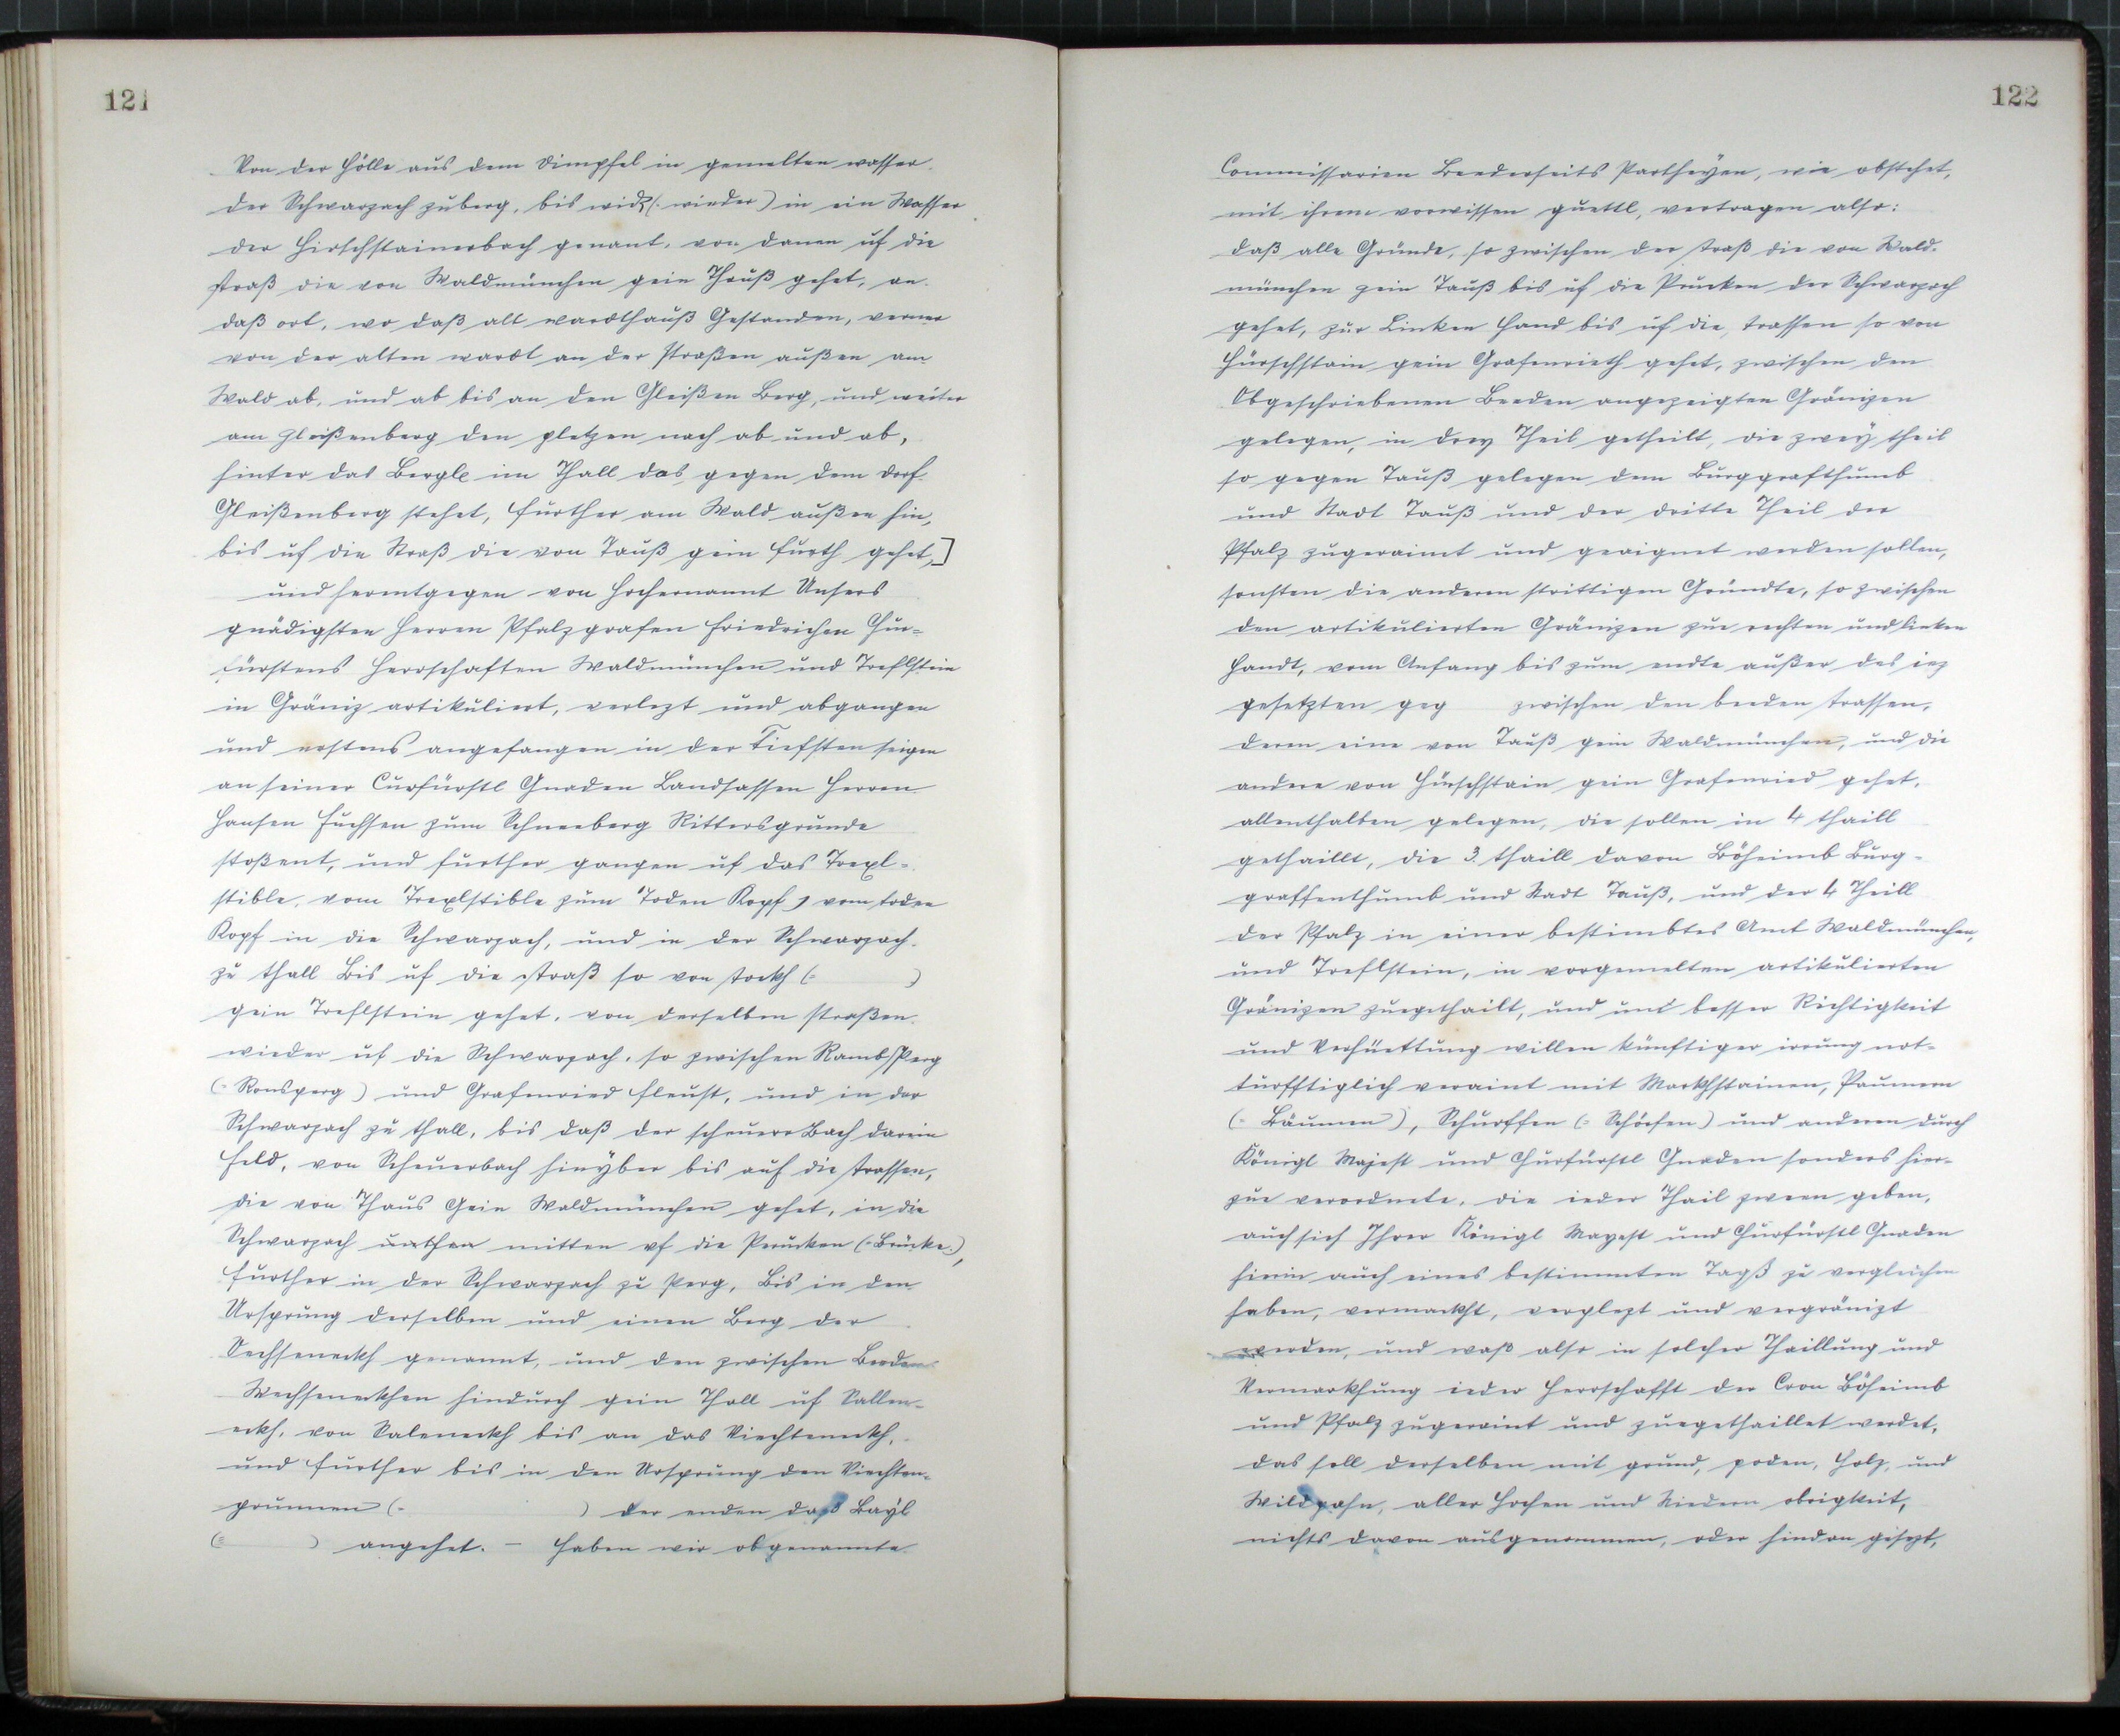 121
Von der Hölle aus dem Dimpfel in gemelten wasser
der Schwarzach zuberg, bis wid (: wieder) in ein Wasser
der Hirschstainerbach genant, von danen uf die
straß die von Waldmünchen gein Thauß gehet, an
daß ort, wo daß alt wardthauß Gestanden, verner
von der alten wardt an der Straßen außen am
Wald ab, und ab bis an den Gleißen Berg, und weiter
am gleißenberg den pletzen nach ab und ab,
hinter das Bergle im Thall das gegen dem dorf
Gleißenberg stehet, further am Wald außen hin,
bis uf die Straß die von Tauß gein furth gehet,]
und herentgegen von Hochernannt Unsers
gnädigsten Herren Pfalzgrafen Friedrichen Chur-
fürstens Herrschaften Waldmünchen und Treflstein
in Gräniz artikuliert, verlezt und abgangen
und erstens angefangen in der Tiefsten seigen
an seiner Curfürstl Gnaden Landsassen Herren
Hansen Fuchsen zum Schneeberg Rittersgrunde
stoßent, und further gangen uf das Trexl-
stible, vom Trexlstible zum Toden Kopf, vom toden
Kopf in die Schwarzach, und in der Schwarzach
zu thall Bis uf die straß so von stockh (= )
gein Treflstein gehet, von derselben straßen
wieder uf die Schwarzach, so zwischen RambsPerg
(= Ronsperg) und Grafenried fleust, und in der
Schwarzach zu thall, bis daß der scheuere Bach darein
feld, von Scheuerbach hinyber bis auf die strassen,
die von Thaus Gein Waldmünchen gehet, in die
Schwarzach unthen mitten uf die Perucken (=Brücke),
further in der Schwarzach zu Perg, Bis in den
Ursprung derselben und einen Berg der
Sechseneckh genannt, und den zwischen Beeden
Wechseneckhen hindurch gein Thall uf Sallen-
eckh, von Saleneckh bis an das Viechteneckh,
und further bis in den Ursprung den Viechten-
prunnen (= ) der enden daß Bayl
(= ) angehet. – Haben wir obgenannte
122
Commissarien Beederseits Partheyen, wie obstehet,
mit ihrem vorwissen guettl, vertragen also:
daß alle Gründe, so zwischen der straß die von Wald-
münchen gein Tauß bis uf die Prucken der Schwarzach
gehet, zur Linken Hand bis uf die strassen so von
Hürschstain gein Grafenrieth gehet, zwischen den
Obgeschriebenen Beeden angezeigten Gränizen
gelegen, in drey Theil getheilt, die zwey theil
so gegen Tauß gelegen dem Burggrafthumb
und Stadt Tauß und der dritte Theil der
Pfalz zugeraimt und geaignet werden sollen,
sonsten die anderen strittigen Gründte, so zwischen
den artikulierten Gränizen zur rechten und linken
Handt, vom Anfang bis zum endte außer des iez
gesetzten geg zwischen den beeden strassen,
deren eine von Tauß gein Waldmünchen, und die
andere von Hürschstain gein Grafenried gehet,
allenthalben gelegen, die sollen in 4 thaill
gethaillt, die 3. thaill davon Böheimb Burg-
graffenthumb und Stadt Tauß, und der 4 Theill
der Pfalz in einer bestimbtes Amt Waldmünchen,
und Treflstein, in vorgemelten artikulierten
Gränizen zuegethailt, und umb besser Richtigkeit
und Verhüettung willen künftiger irrung not-
türfftiglich veraint mit Markhstainen, Paumern
(= Bäumen), Schurffen (= Schörfen) und anderen durch
Königl Majest und Churfürstl Gnaden sonders hier-
zue verordnete, die ieder Thail zween geben,
auch sich Ihrer Königl Mayest und Churfürstl Gnaden
hierin auch eines bestimmten Tagß zu vergleichen
haben, vermarkht, verplezt und vergränizt
werden, und waß also in solcher Thaillung und
Vermarkhung ieder Herrschafft der Cron Böheimb
und Pfalz zugeraint und zuegethaillet werdet,
das soll derselben mit grund, poden, Holz, und
Wildpahn, aller Hochen und Niedern obrigkeit,
nichts davon ausgenommen, oder hindan gesezt,